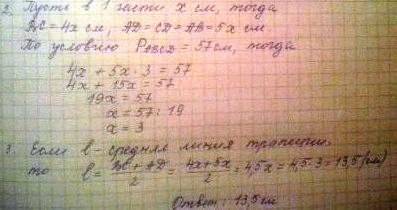 2. Пусть в 1 части x см, тогда
BC = 4x см, AD = CD = AB = 5x см
По условию P ABCD = 57 см, тогда
4x + 5x · 3 = 57
4x + 15x = 57
19x = 57
x = 57 : 19
x = 3
3. Если l - средняя линия трапеции
то l = BC + AD / 2 = 4x + 5x / 2 = 4,5x = 4,5 · 3 = 13,5 (см)
Ответ : 13,5 см